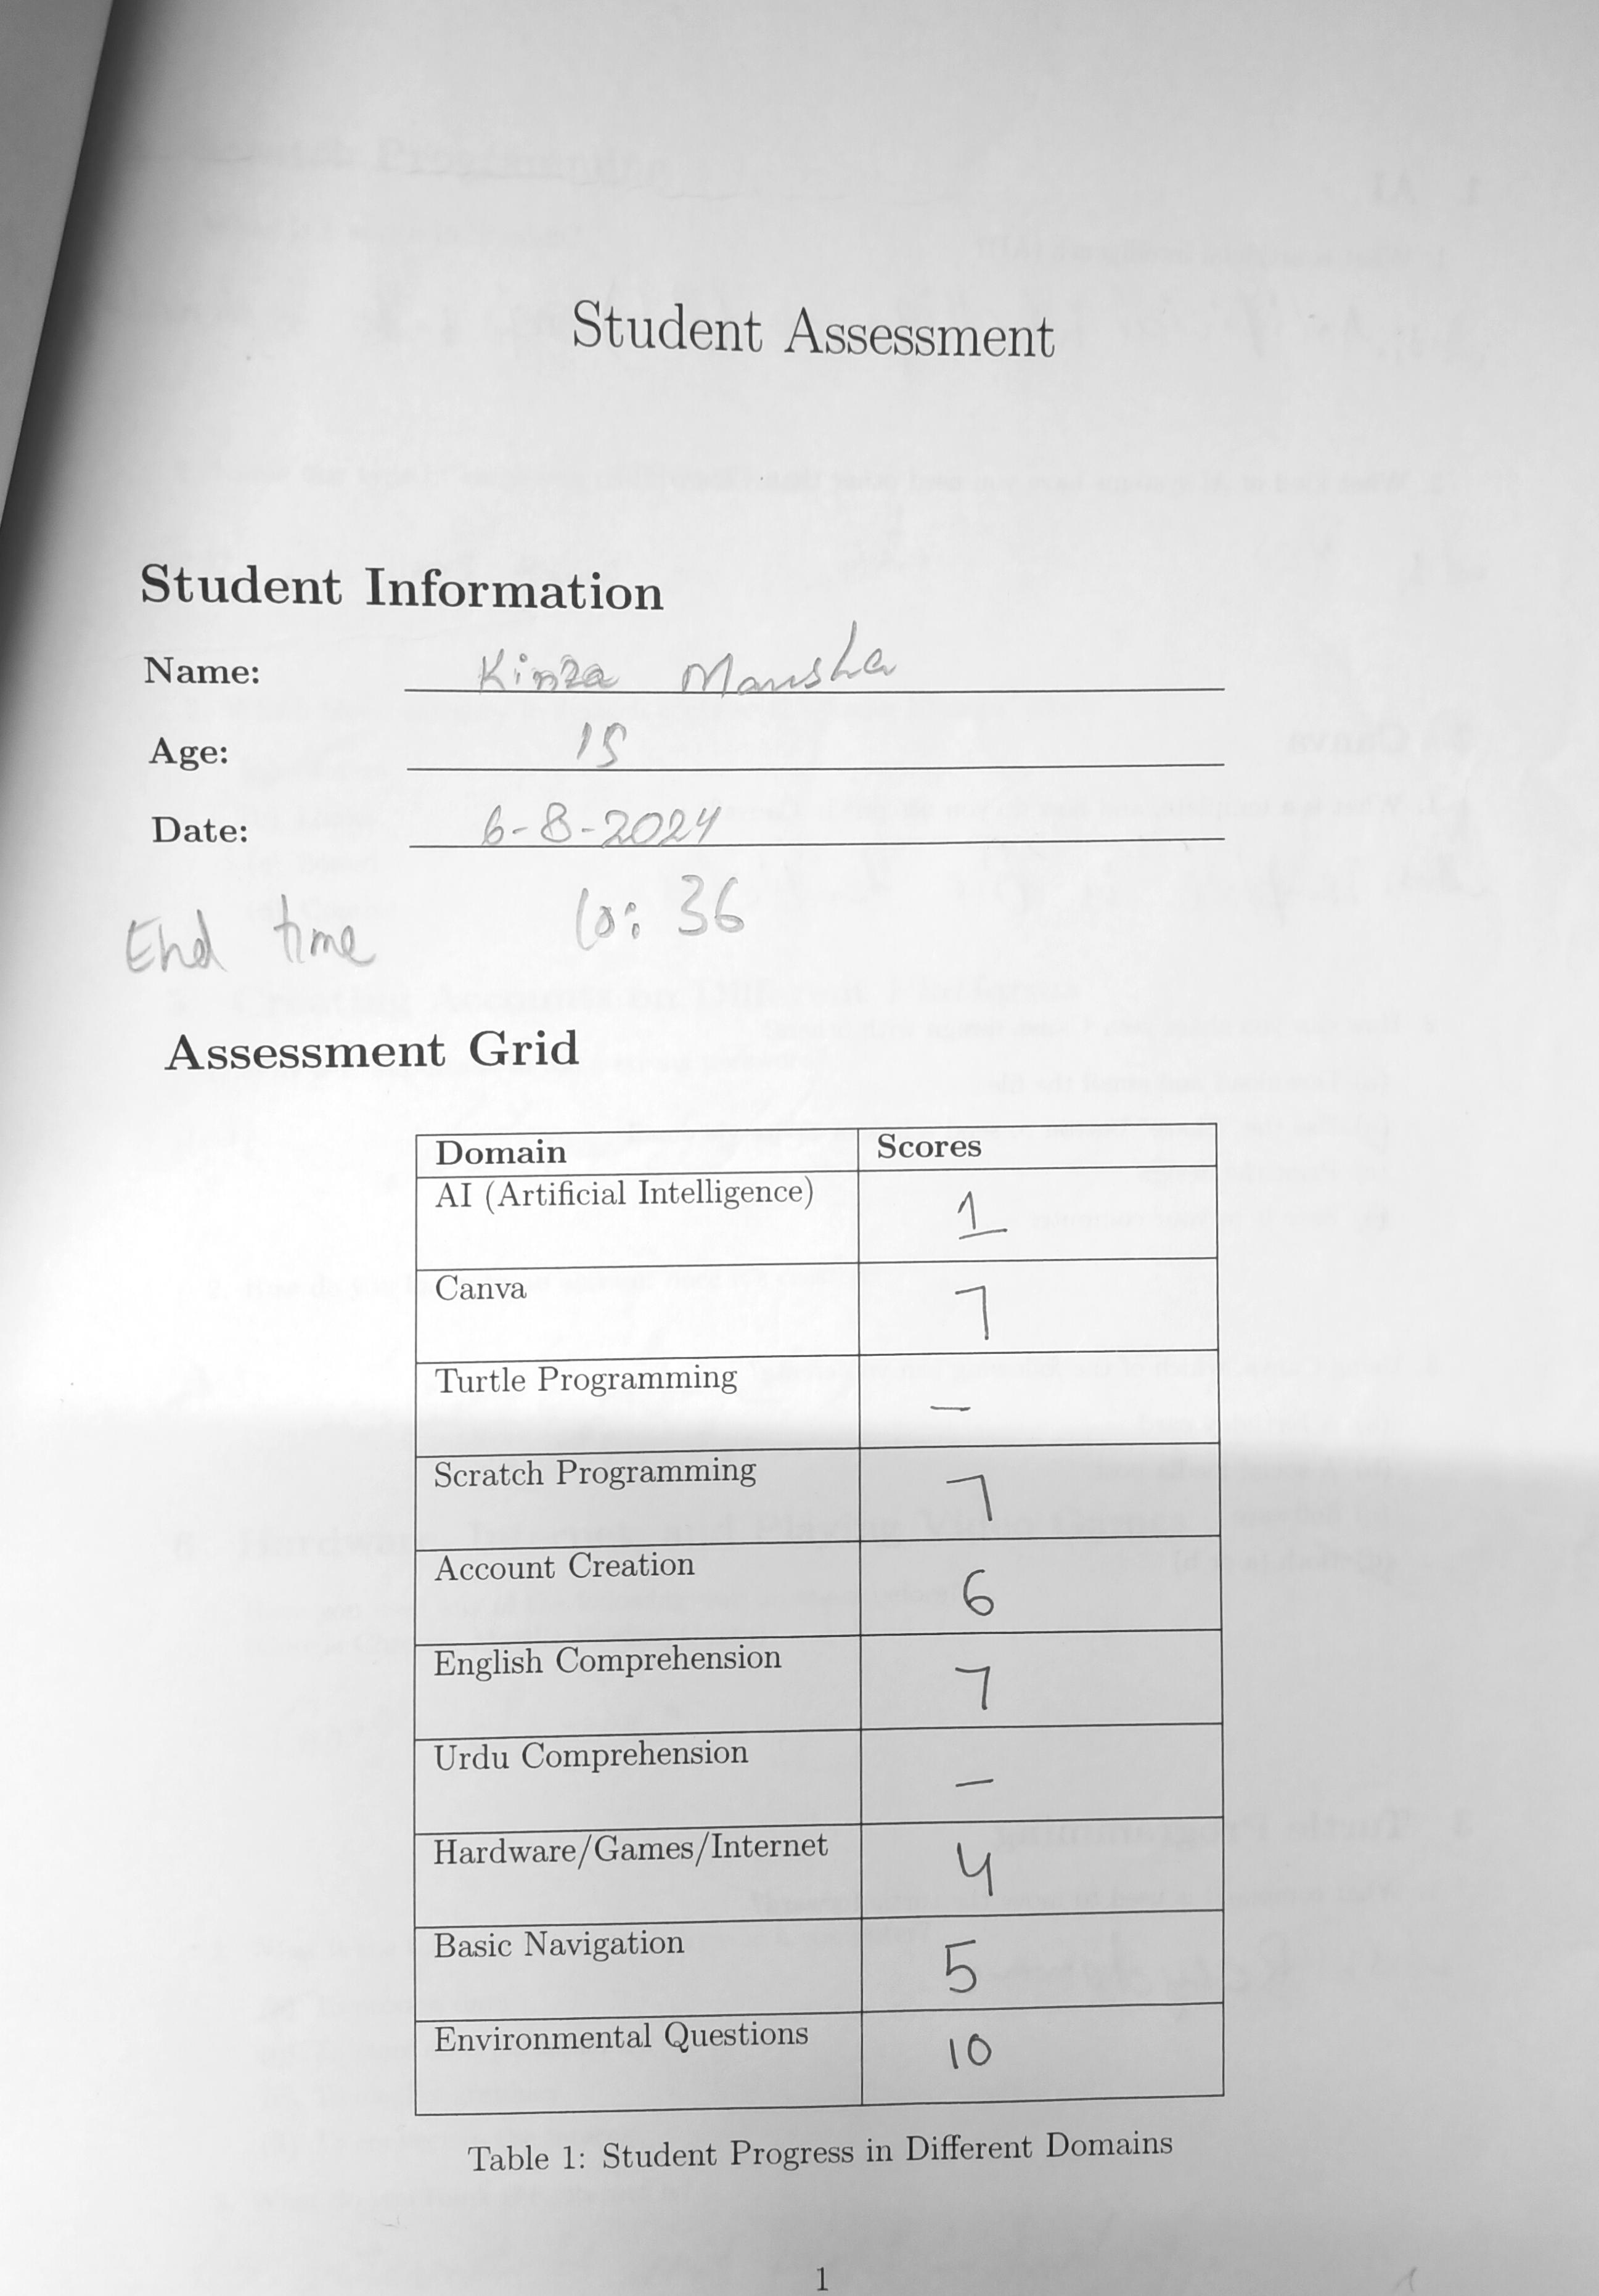 Student Assessment
Student Information
Name: Kinza Mansha
Age: 15
Date: 6-8-2024
End time 10:36
Assessment Grid
Domain Scores
AI (Artificial Intelligence) 1
Canva 7
Turtle Programming –
Scratch Programming 7
Account Creation 6
English Comprehension 7
Urdu Comprehension –
Hardware/Games/Internet 4
Basic Navigation 5
Environmental Questions 10
Table 1: Student Progress in Different Domains
1